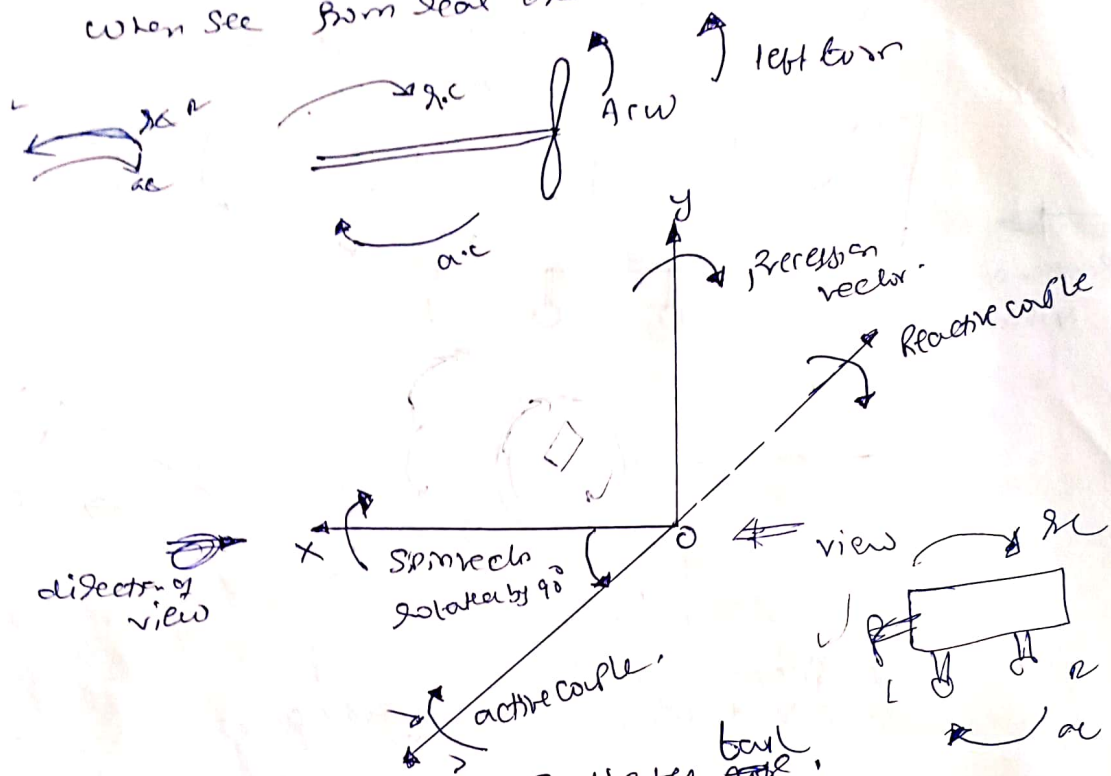 when see from
left turn
r.c
A.C.W
R
L
ac
a.c
y
Precession
vector.
Reactive couple
X
Spin vector
rotated by 90°
O
view
direction of
view
rc
active couple.
L
R
ac
tail